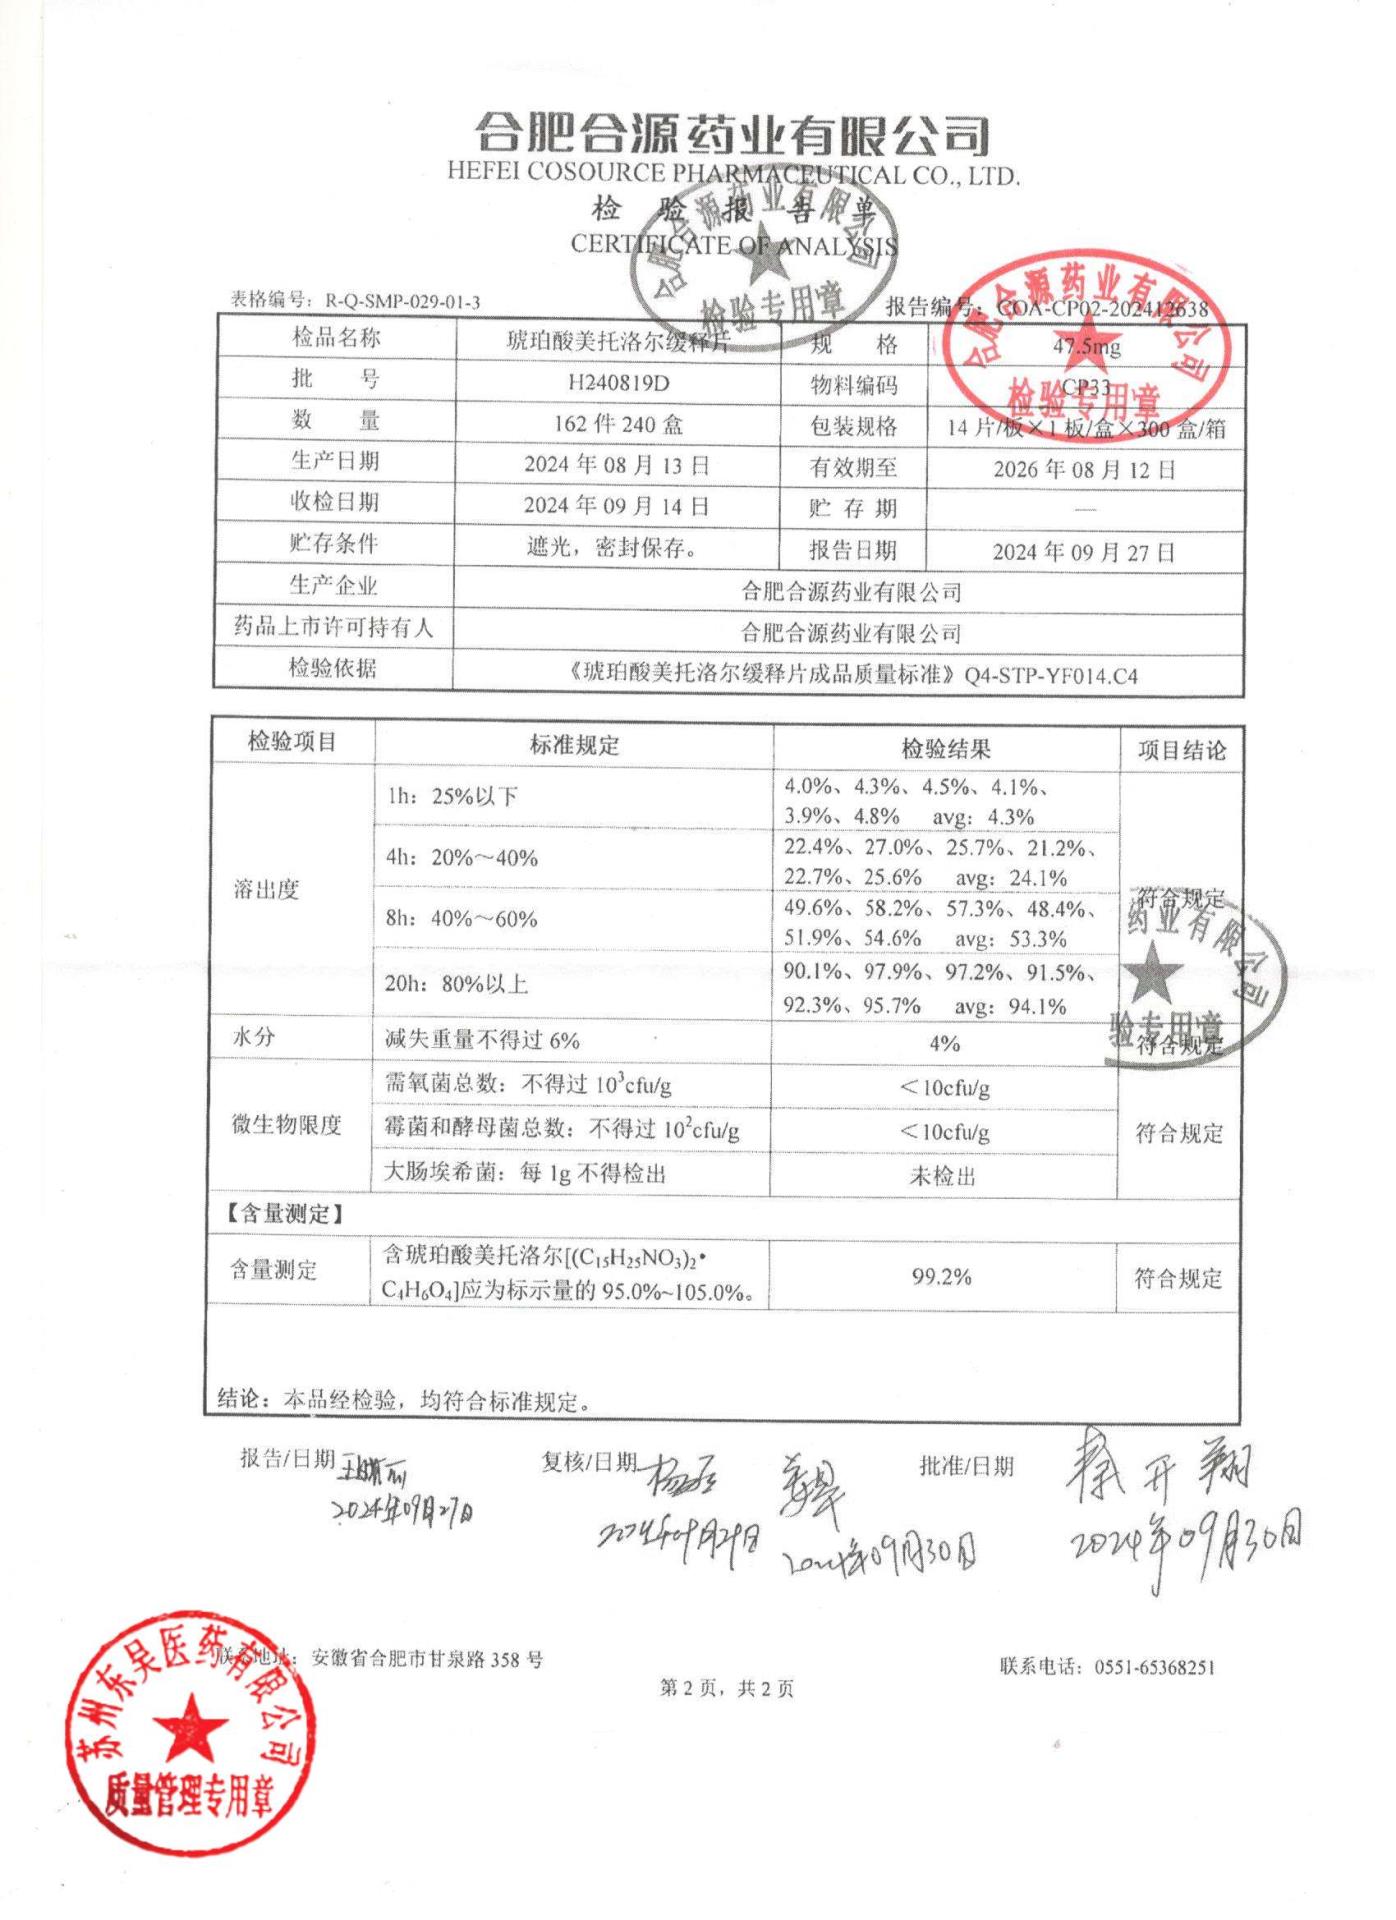 合肥合源药业有限公司
HEFEI COSOURCE PHARMACEUTICAL CO., LTD.
检 验 报 告 单
CERTIFICATE OF ANALYSIS
合肥合源药业有限公司
检验专用章
合肥合源药业有限公司
检验专用章
表格编号：R-Q-SMP-029-01-3 报告编号：COA-CP02-202412638
检品名称 琥珀酸美托洛尔缓释片 规 格 47.5mg
批 号 H240819D 物料编码 CP33
数 量 162 件 240 盒 包装规格 14 片/板×1 板/盒×300 盒/箱
生产日期 2024 年 08 月 13 日 有效期至 2026 年 08 月 12 日
收检日期 2024 年 09 月 14 日 贮 存 期 —
贮存条件 遮光，密封保存。 报告日期 2024 年 09 月 27 日
生产企业 合肥合源药业有限公司
药品上市许可持有人 合肥合源药业有限公司
检验依据 《琥珀酸美托洛尔缓释片成品质量标准》Q4-STP-YF014.C4
检验项目 标准规定 检验结果 项目结论
溶出度 1h：25%以下 4.0%、4.3%、4.5%、4.1%、
3.9%、4.8% avg：4.3%
4h：20%～40% 22.4%、27.0%、25.7%、21.2%、
22.7%、25.6% avg：24.1%
8h：40%～60% 49.6%、58.2%、57.3%、48.4%、
51.9%、54.6% avg：53.3%
20h：80%以上 90.1%、97.9%、97.2%、91.5%、
92.3%、95.7% avg：94.1%
符合规定
药业有限公司
验专用章
水分 减失重量不得过 6% 4% 符合规定
微生物限度 需氧菌总数：不得过 10³cfu/g ＜10cfu/g
霉菌和酵母菌总数：不得过 10²cfu/g ＜10cfu/g 符合规定
大肠埃希菌：每 1g 不得检出 未检出
【含量测定】
含量测定 含琥珀酸美托洛尔[(C₁₅H₂₅NO₃)₂•
C₄H₆O₄]应为标示量的 95.0%~105.0%。 99.2% 符合规定
结论：本品经检验，均符合标准规定。
报告/日期 复核/日期 批准/日期
2024年09月27日 2024年09月29日 2024年09月30日 2024年09月30日
联系地址：安徽省合肥市甘泉路 358 号 联系电话：0551-65368251
第 2 页，共 2 页
苏州东吴医药有限公司
质量管理专用章